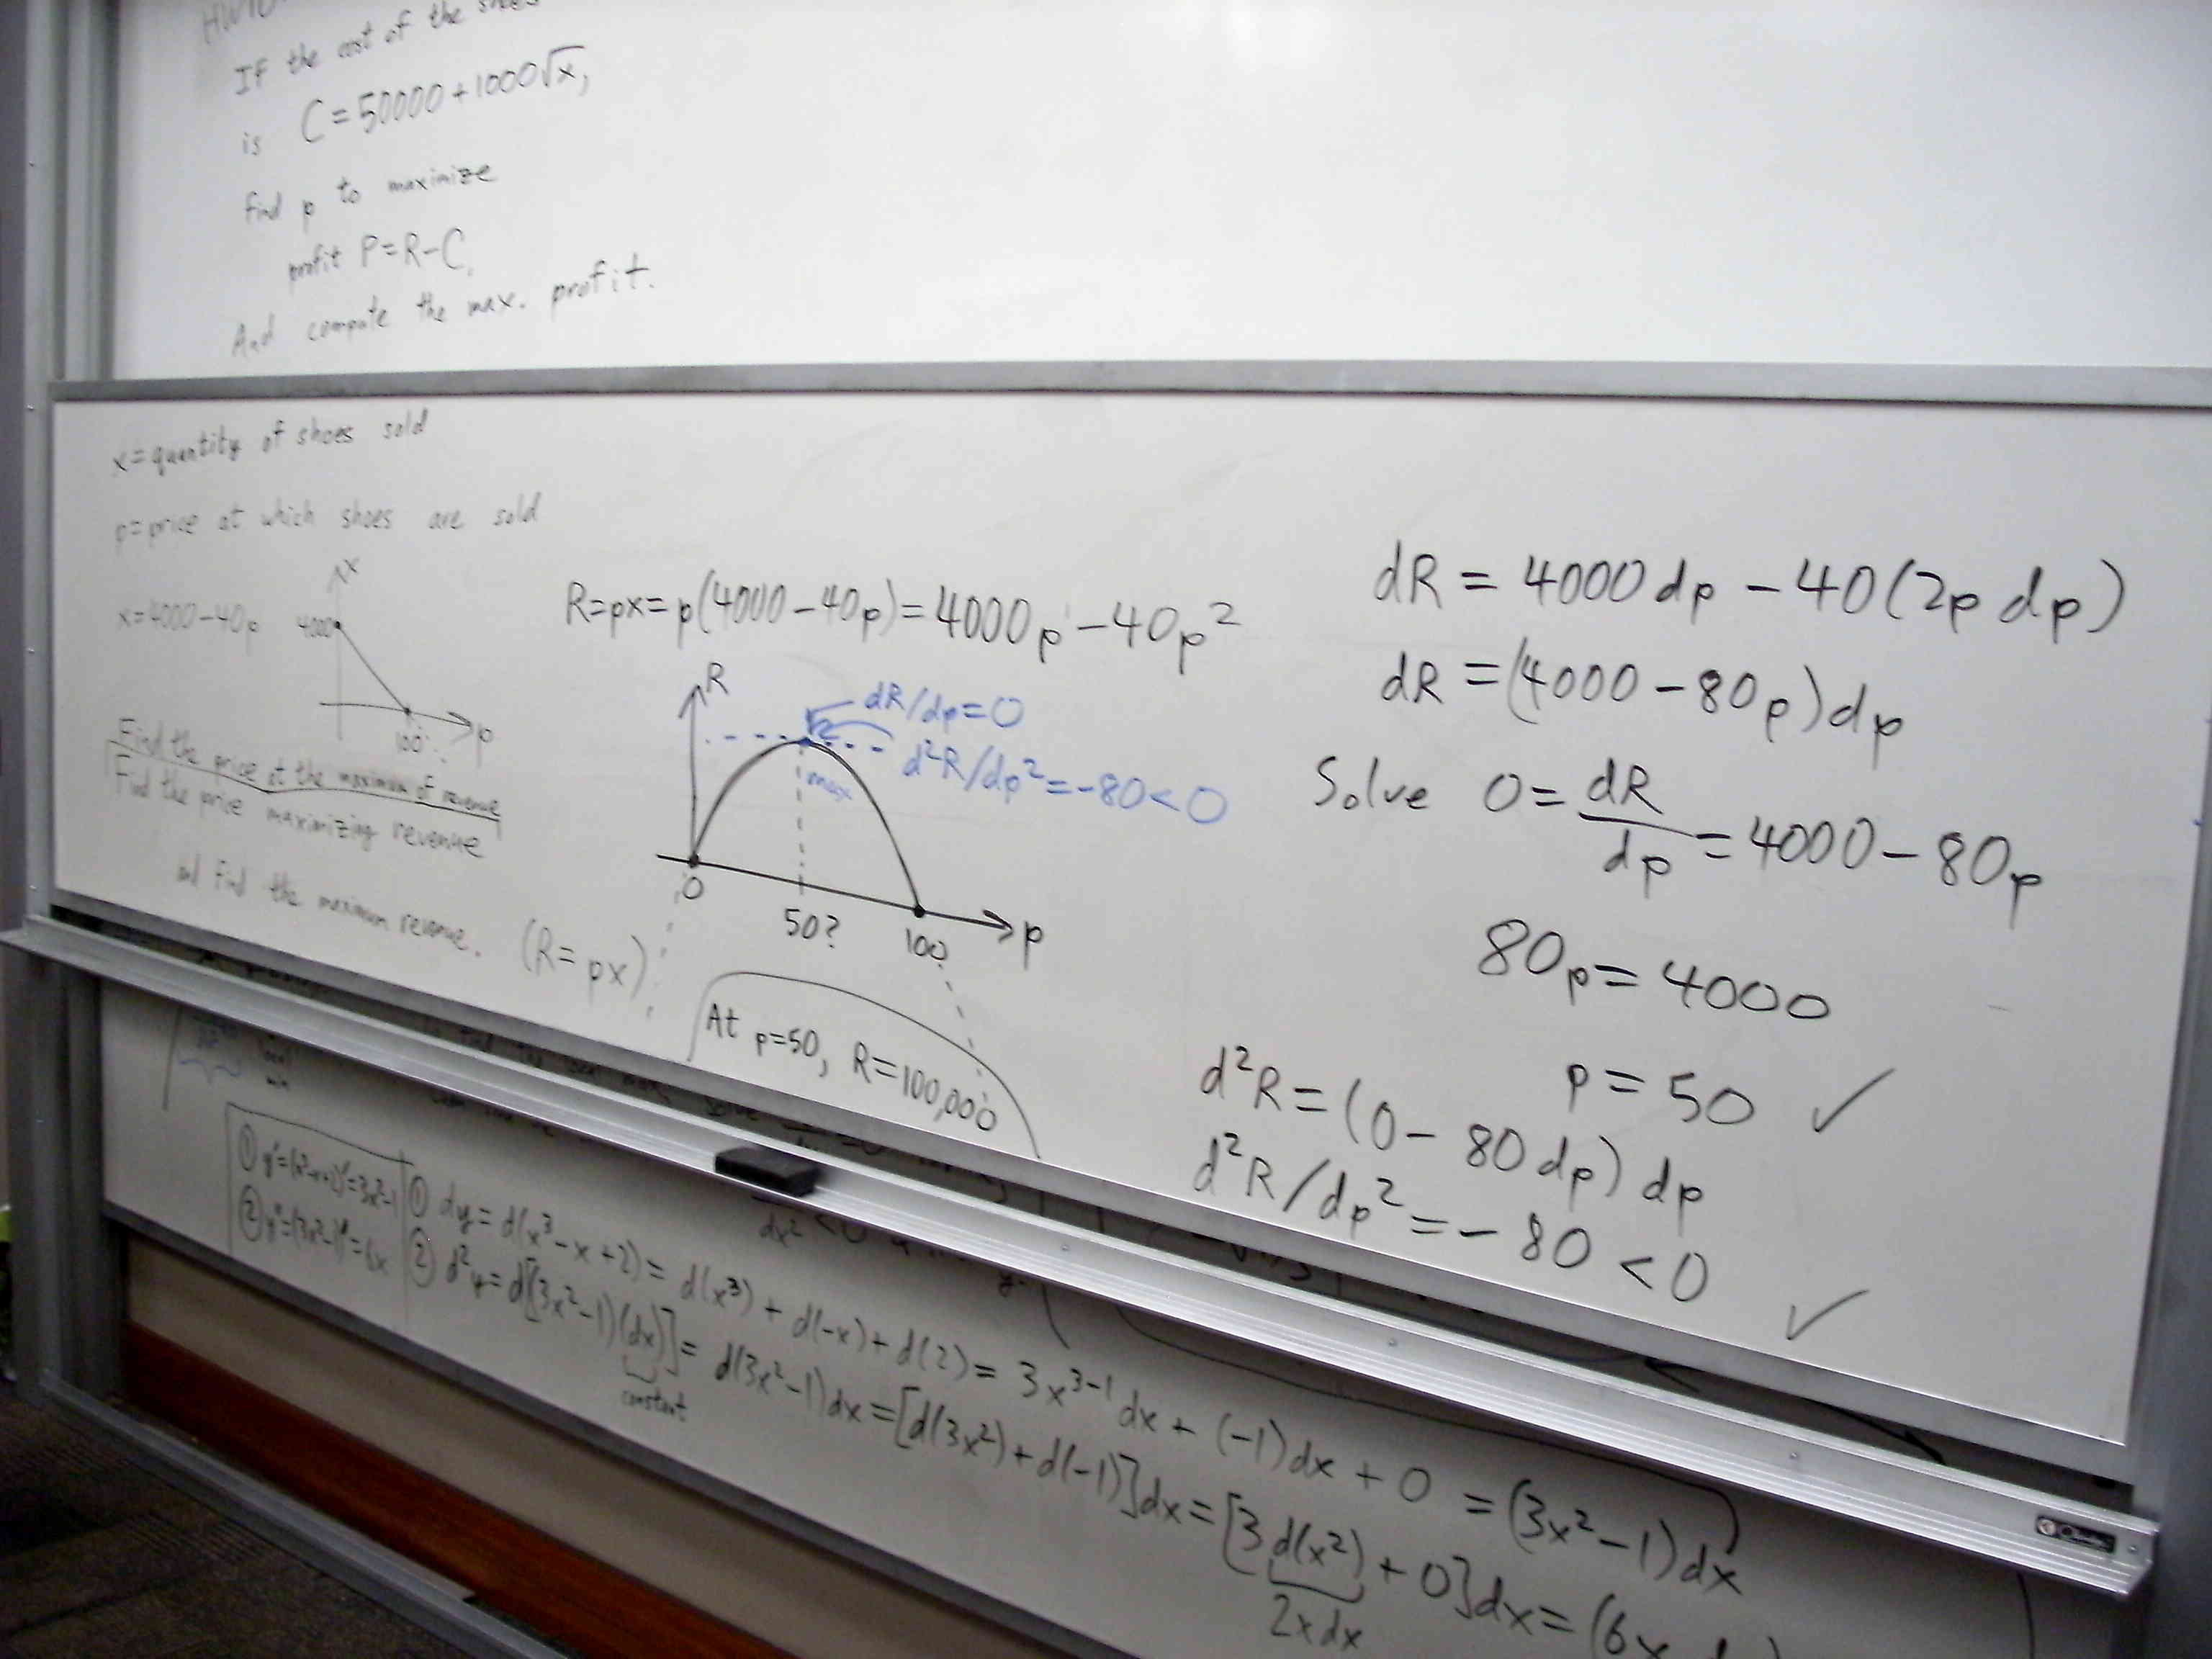 If the cost of the shoes
is C=50000+1000√x,
find p to maximize
profit P=R-C.
And compute the max. profit.
x=quantity of shoes sold
p=price at which shoes are sold
x=4000-40p
x
4000
100
p
Find the price at the maximum of revenue
Find the price maximizing revenue
and find the maximum revenue. (R=px)
R=px=p(4000-40p)=4000p-40p²
R
dR/dp=0
d²R/dp²=-80<0
max
0
50?
100
p
At p=50, R=100,000
dR = 4000dp - 40(2p dp)
dR = (4000-80p)dp
Solve 0 = dR/dp = 4000-80p
80p = 4000
p = 50 ✓
d²R = (0- 80dp) dp
d²R/dp² = -80 < 0 ✓
min
dx² < 0
① y'=(x³-x+2)'=3x²-1
② y''=(3x²-1)'=6x
① dy = d(x³-x+2) = d(x³) + d(-x) + d(2) = 3x³⁻¹dx + (-1)dx + 0 = (3x²-1)dx
② d²y = d[(3x²-1)(dx)] = d(3x²-1)dx = [d(3x²)+d(-1)]dx = [3d(x²)+0]dx = (6x
constant
2xdx